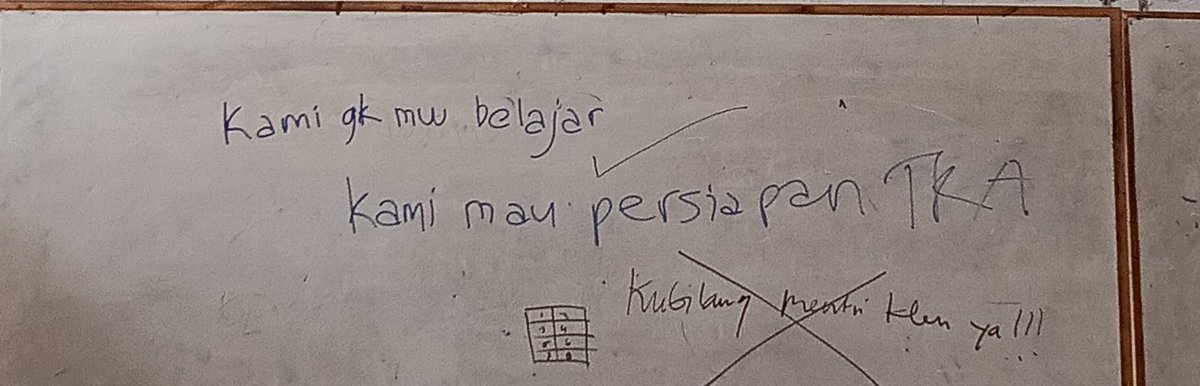 Kami gk mw belajar
Kami mau persiapan TKA
Kubilang mentri klen ya!!!
1 2
3 4
5 6
7 8